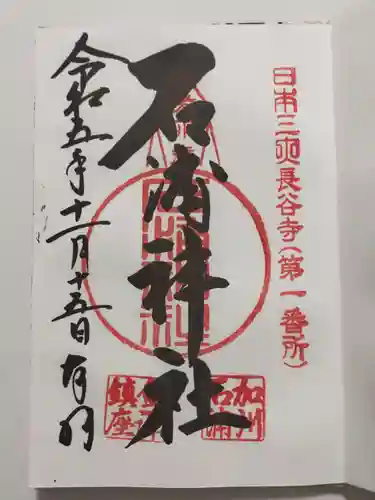 日本三大長谷寺(第一番所)
石浦神社
令和五年十一月十五日
加州
石浦
鎮座